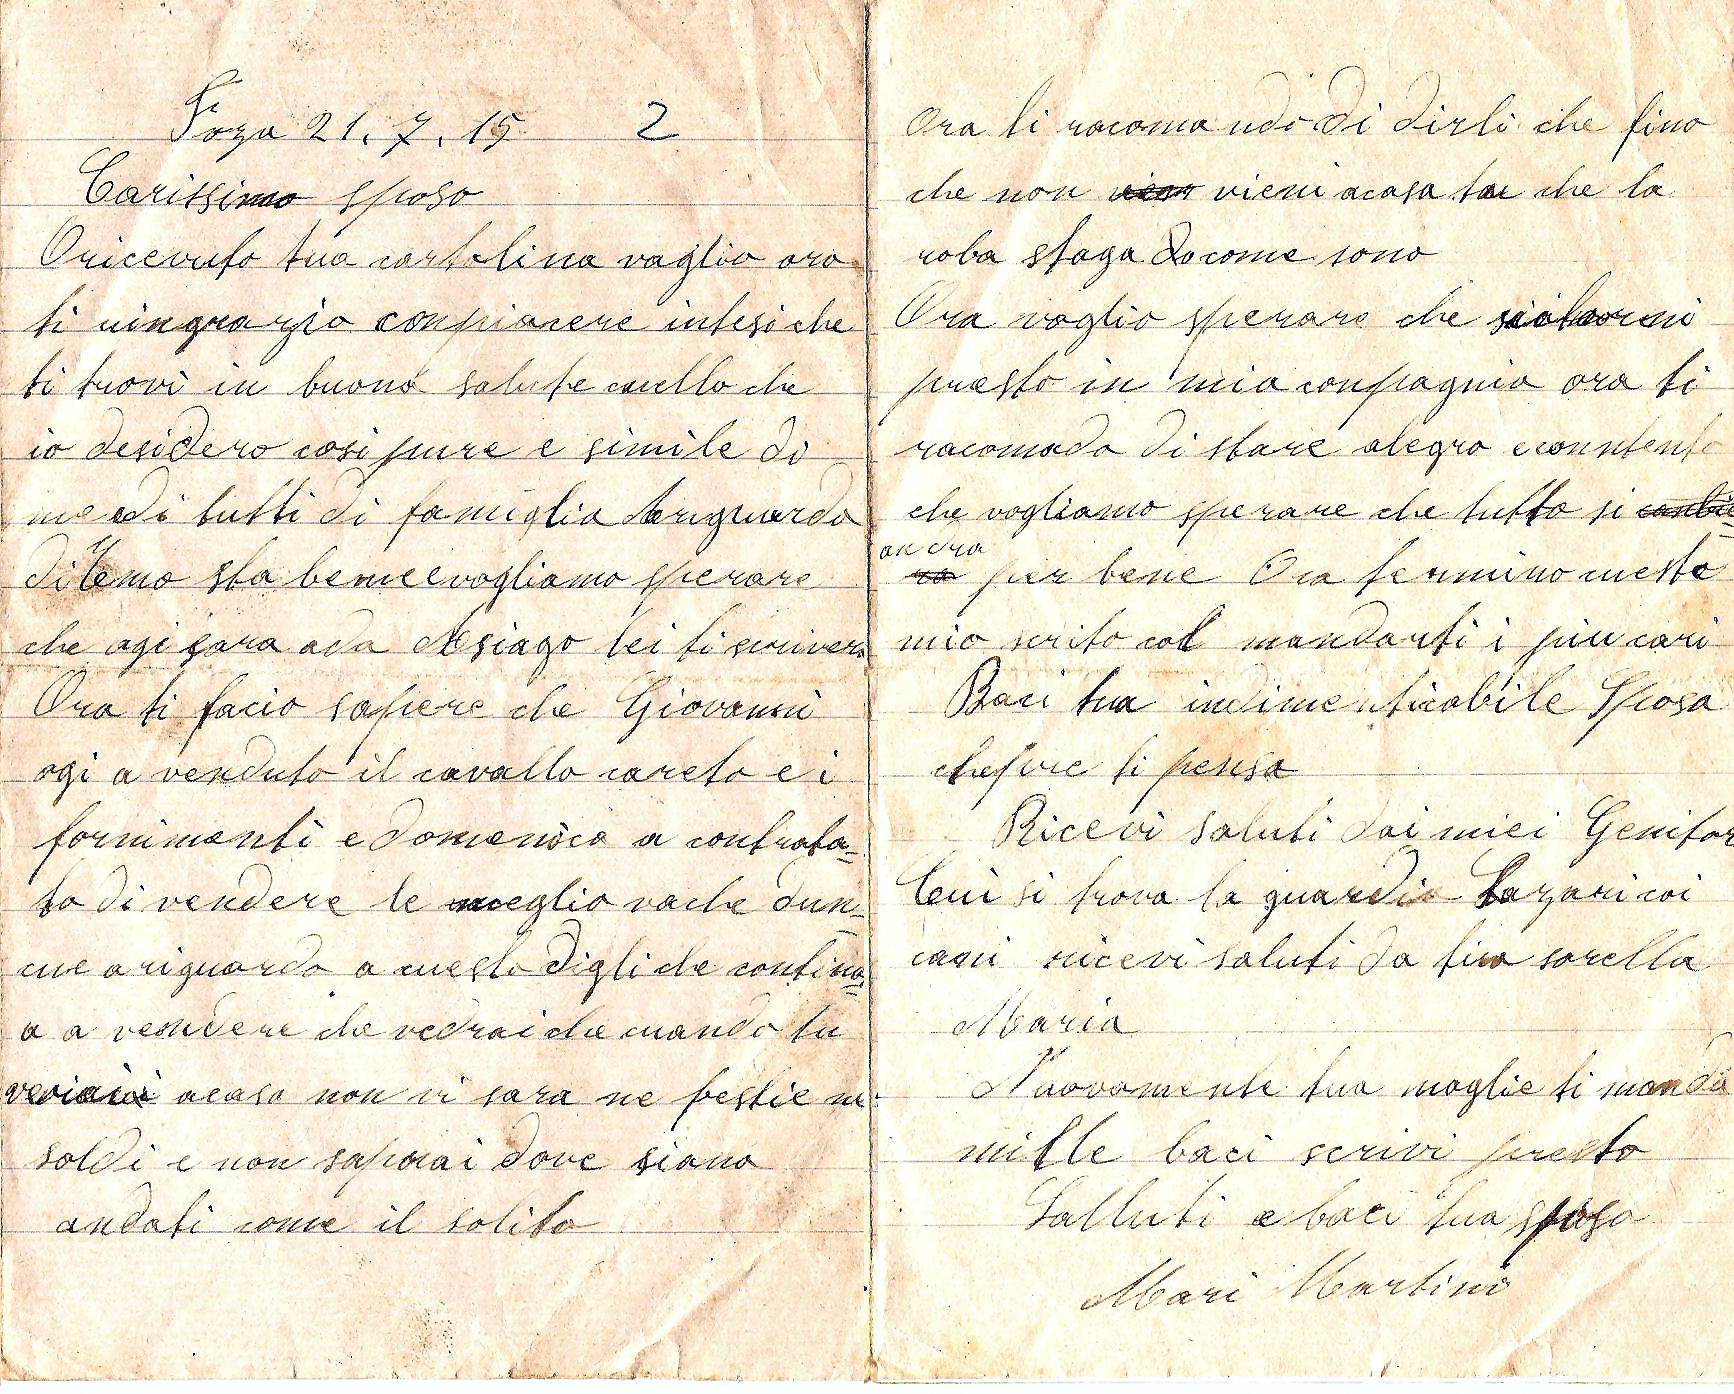 Foza 21. 7. 15 2
Carissimo sposo
O ricevuto tua cartolina vaglio ora
ti ringrazio con piacere intesi che
ti trovi in buona salute cuello che
io desidero cosi pure e simile di
me e di tutti di famiglia Ariguardo
di Remo sta bene e vogliamo sperare
che ogi sara ada Asiago lei ti scrivera
Ora ti facio sapere che Giovanni
ogi a venduto il cavallo careta e i
fornimenti e Domenico a contrata=
to di vendere le meglio vache dun=
cue a riguardo a cuesto digli che continu=
a a vendere che vedrai che cuando tu
acasa non vi sara ne bestie ne
soldi e non saporai dove siano
andati come il solito
Ora ti racomando di dirli che fino
che non vieni acasa tu che la
roba staga la come sono
Ora voglio sperare che
presto in mia conpagnia ora ti
racomado di stare alegro e conntento
che vogliamo sperare che tutto si canbie
andra
ra per bene Ora termino cuesto
mio scrito col mandarti i piu cari
Baci tua indimenticabile Sposa
che pre ti pensa
Ricevi saluti dai miei Genitor
Cui si trova la guardia Lazari coi
cani ricevi saluti da tua sorella
Maria
Nuovamente tua moglie ti manda
mille baci scrivi presto
Salluti e baci tua sposa
Mari Martini